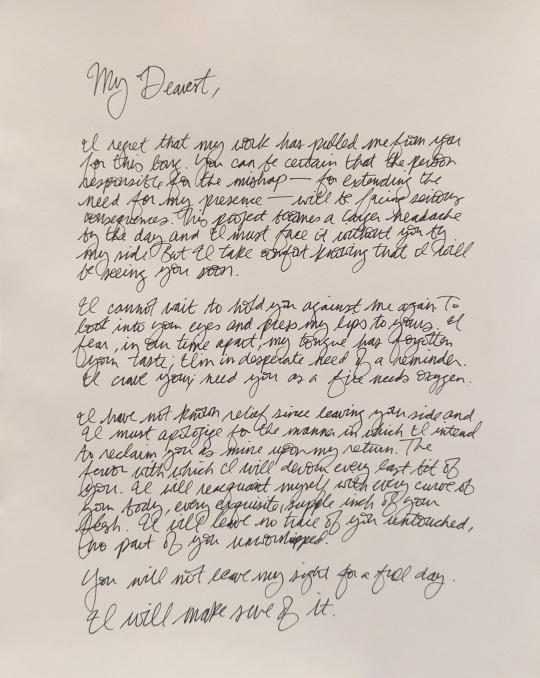 My Dearest,
I regret that my work has pulled me from you
for this long. You can be certain that the person
responsible for the mishap — for extending the
need for my presence — will be facing serious
consequences. This project becomes a larger headache
by the day and I must face it without you by
my side. But I take comfort knowing that I will
be seeing you soon.
I cannot wait to hold you against me again. To
look into your eyes and press my lips to yours. I
fear, in our time apart, my tongue has forgotten
your taste; I'm in desperate need of a reminder.
I crave you; need you as a fire needs oxygen.
I have not known relief since leaving your side and
I must apologize for the manner in which I intend
to reclaim you as mine upon my return. The
fervor with which I will devour every last bit of
you. I will reacquaint myself with every curve of
your body, every exquisite, supple inch of your
flesh. I will leave no trace of you untouched,
no part of you unworshipped.
You will not leave my sight for a full day.
I will make sure of it.